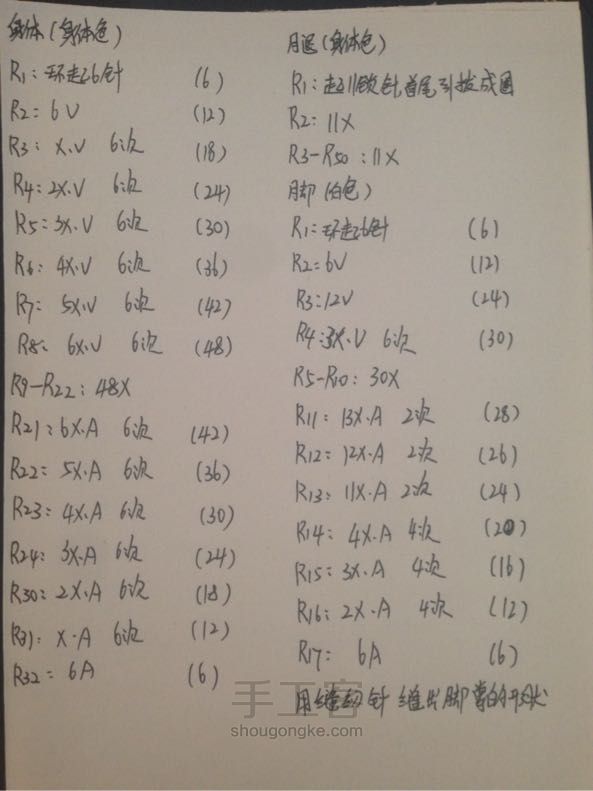 身体(身体色)
R1:环起6针 (6)
R2:6V (12)
R3:X.V 6次 (18)
R4:2X.V 6次 (24)
R5:3X.V 6次 (30)
R6:4X.V 6次 (36)
R7:5X.V 6次 (42)
R8:6X.V 6次 (48)
R9-R22:48X
R21:6X.A 6次 (42)
R22:5X.A 6次 (36)
R23:4X.A 6次 (30)
R24:3X.A 6次 (24)
R30:2X.A 6次 (18)
R31:X.A 6次 (12)
R32:6A (6)
腿(身体色)
R1:起11锁针,首尾引拔成圈
R2:11X
R3-R50:11X
脚(白色)
R1:环起6针 (6)
R2:6V (12)
R3:12V (24)
R4:3X.V 6次 (30)
R5-R10:30X
R11:13X.A 2次 (28)
R12:12X.A 2次 (26)
R13:11X.A 2次 (24)
R14:4X.A 4次 (20)
R15:3X.A 4次 (16)
R16:2X.A 4次 (12)
R17:6A (6)
用缝纫针缝出脚掌的形状
手工客
shougongke.com